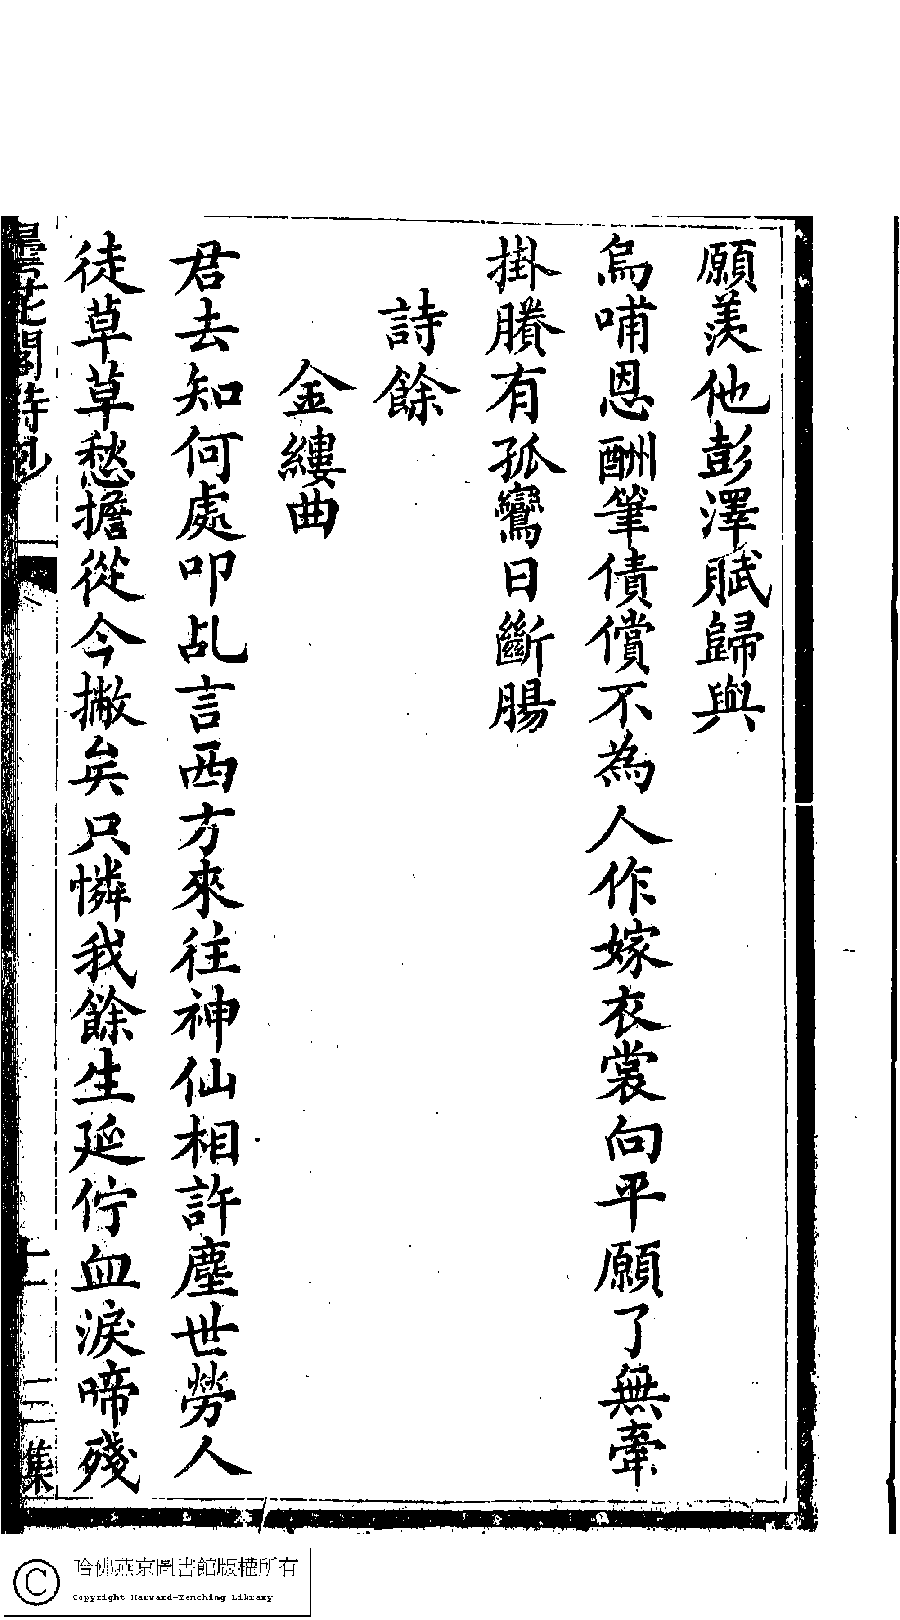 願羨他彭澤賦歸與
烏哺恩酬筆債償不為人作嫁衣裳向平願了無牽
掛賸有孤鸞日斷腸
詩餘
金縷曲
君去知何處叩乩言西方來往神仙相許塵世勞人
徒草草愁擔從今撇矣只憐我餘生延佇血淚啼殘
曇花閣詩鈔
十一
二集
哈佛燕京圖書館版權所有
Copyright Harvard-Yenching Library